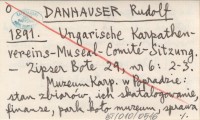 DANHAUSER Rudolf
1891. Ungarische Karpathen-
vereins-Museal-Comité-Sitzung.
- Zipser Bote 29, nr 6: 2-3.
Muzeum Karp. w Popradzie:
stan zbiorów, ich skatalogowanie
finanse, park koło muzeum, sprawa
61/010/0546